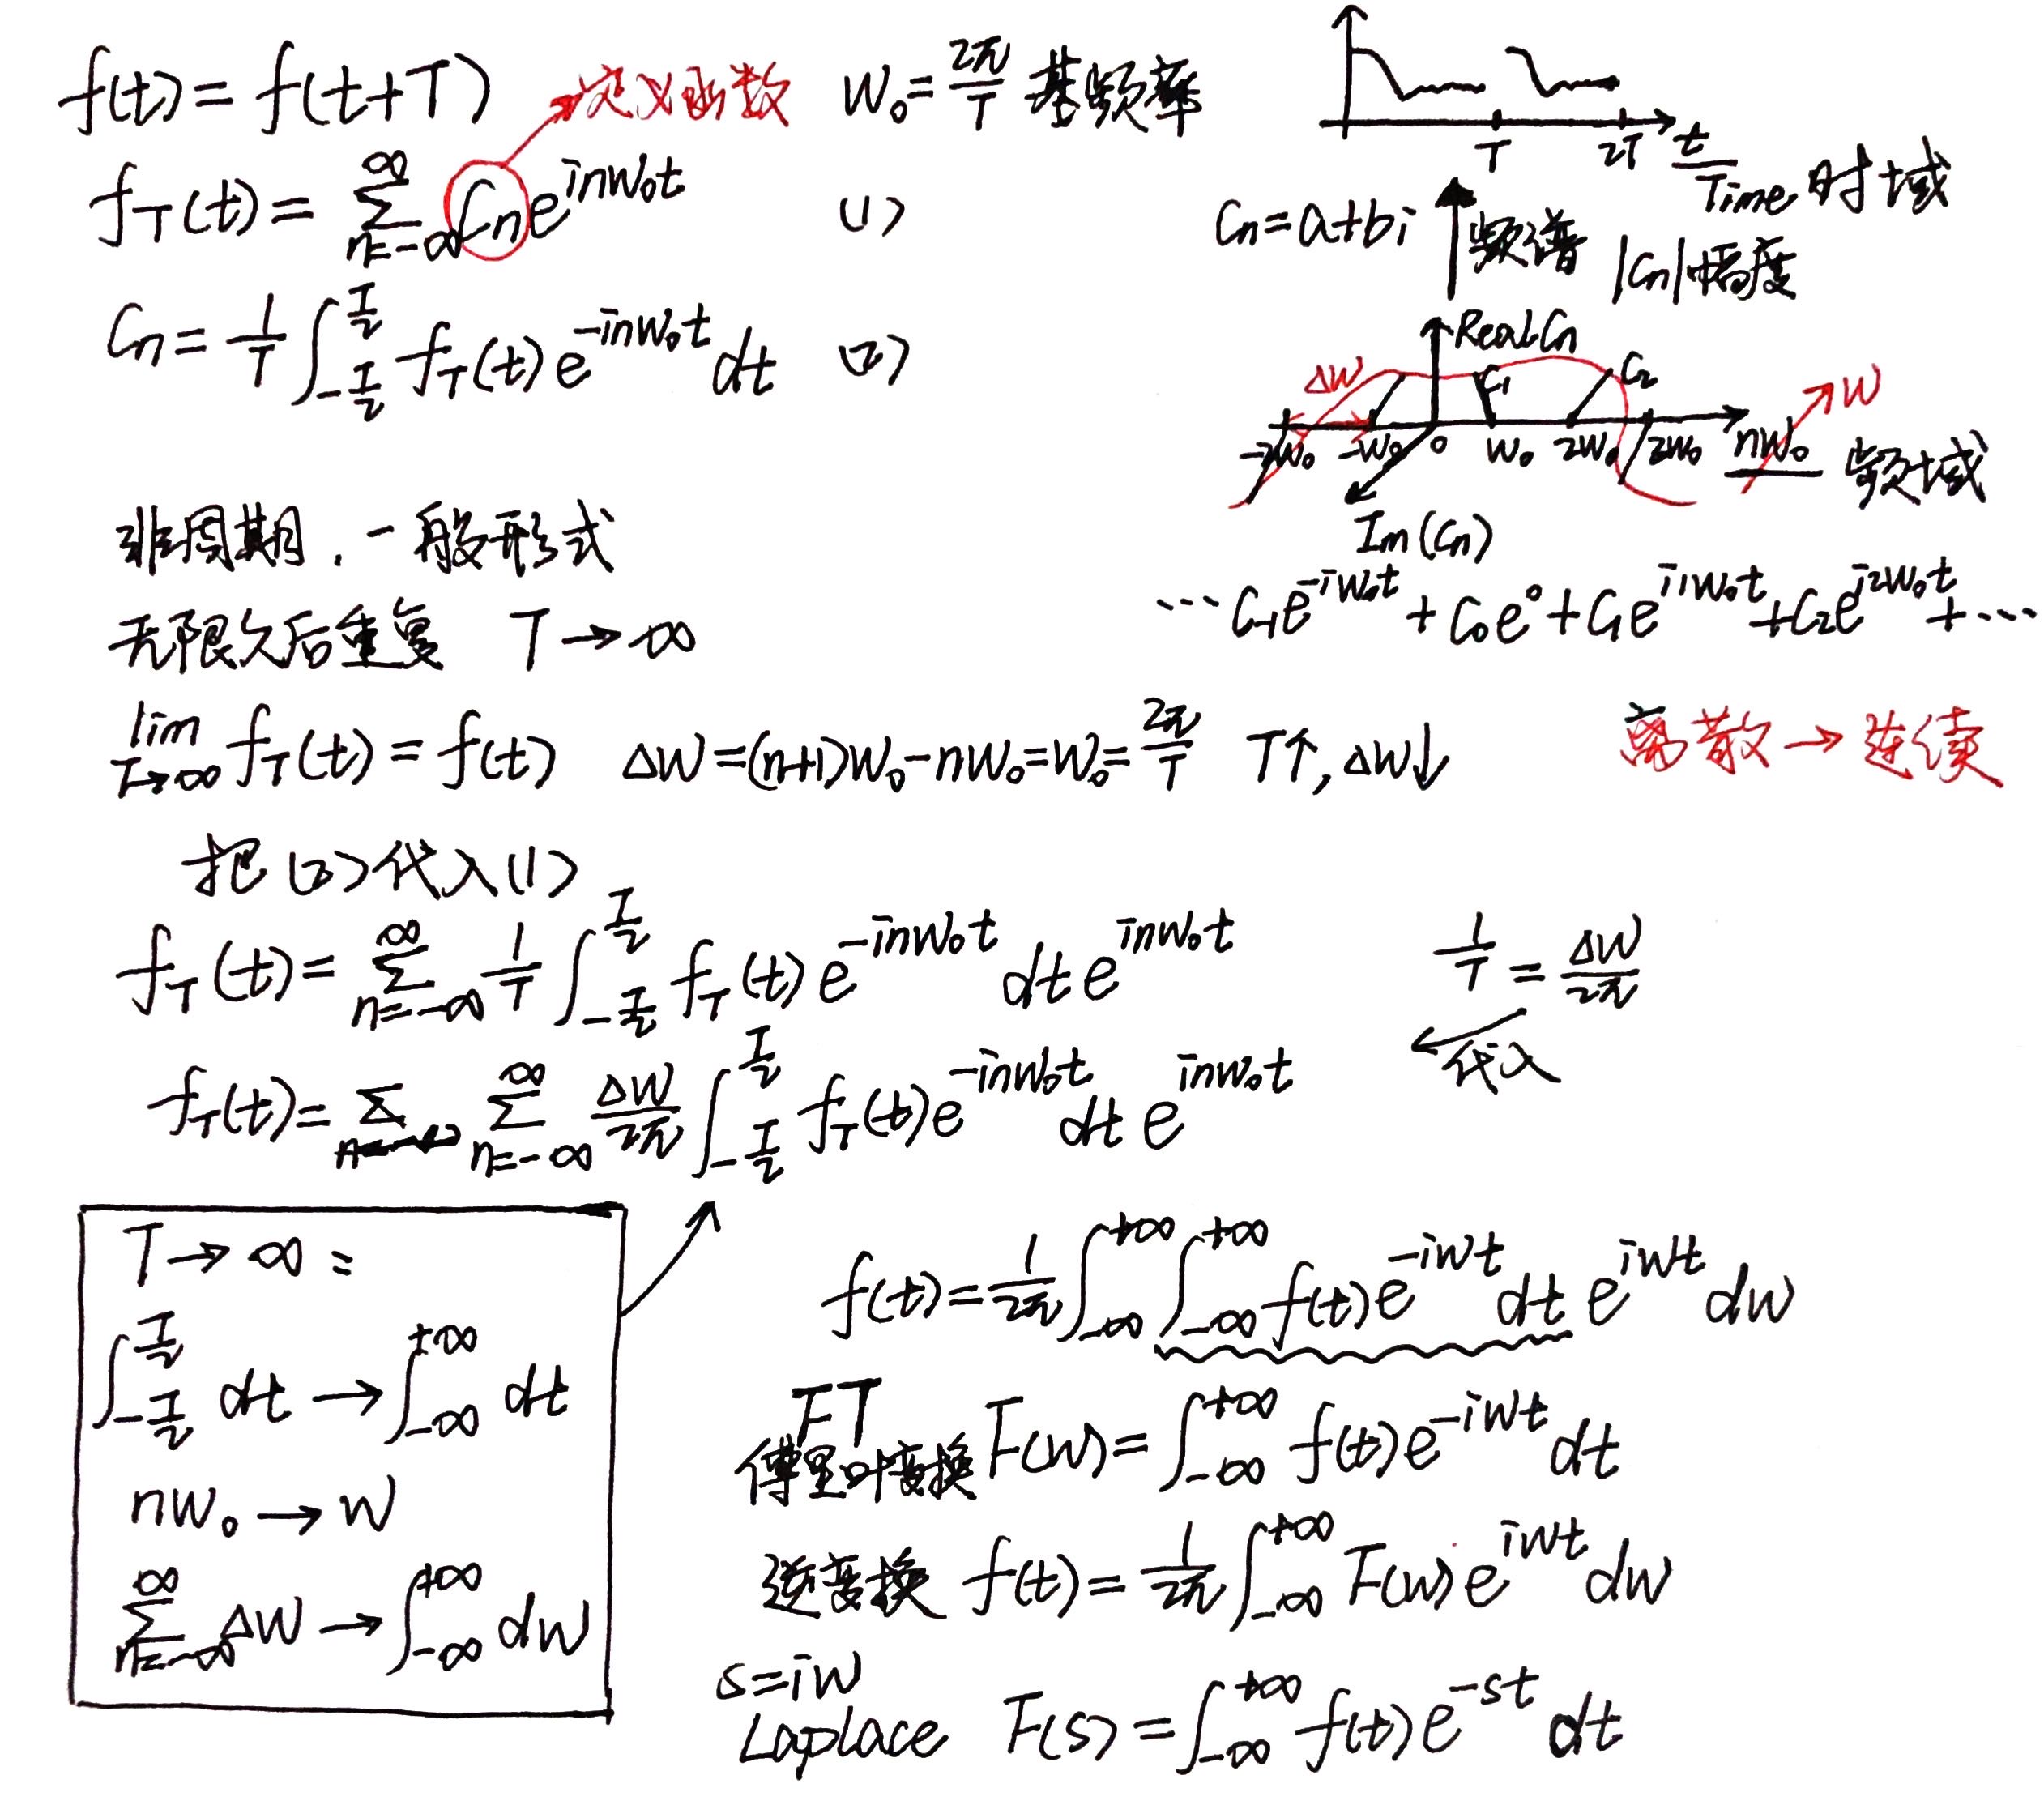 f(t)=f(t+T) →定义函数 W₀=2π/T 基频率
T 2T t Time 时域
f_T(t)=∑_{n=-∞}^{∞} Cn e^{inW₀t} (1)
Cn=a+bi 频谱 |Cn|幅度
Cn=1/T ∫_{-T/2}^{T/2} f_T(t)e^{-inW₀t}dt (2)
Real Cn
ΔW C₁ C₂ W
-2W₀ -W₀ 0 W₀ 2W₀ 2W₀ nW₀ 频域
Im(Cn)
非周期.一般形式
…C₋₁e^{-iW₀t}+C₀e⁰+C₁e^{i1W₀t}+C₂e^{i2W₀t}+…
无限久后重复 T→∞
lim_{T→∞} f_T(t)=f(t) ΔW=(n+1)W₀-nW₀=W₀=2π/T T↑,ΔW↓ 离散→连续
把(2)代入(1)
f_T(t)=∑_{n=-∞}^{∞} 1/T ∫_{-T/2}^{T/2} f_T(t)e^{-inW₀t}dt e^{inW₀t}
1/T=ΔW/2π
代入
f_T(t)=∑_{n=-∞}^{∞} ΔW/2π ∫_{-T/2}^{T/2} f_T(t)e^{-inW₀t}dt e^{inW₀t}
T→∞:
∫_{-T/2}^{T/2} dt→∫_{-∞}^{+∞} dt
nW₀→W
∑_{n=-∞}^{∞} ΔW→∫_{-∞}^{+∞} dW
f(t)=1/2π ∫_{-∞}^{+∞} ∫_{-∞}^{+∞} f(t)e^{-iWt}dt e^{iWt} dW
FT
傅里叶变换 F(W)=∫_{-∞}^{+∞} f(t)e^{-iWt}dt
逆变换 f(t)=1/2π ∫_{-∞}^{+∞} F(W)e^{iWt}dW
s=iW
Laplace F(s)=∫_{-∞}^{+∞} f(t)e^{-st}dt